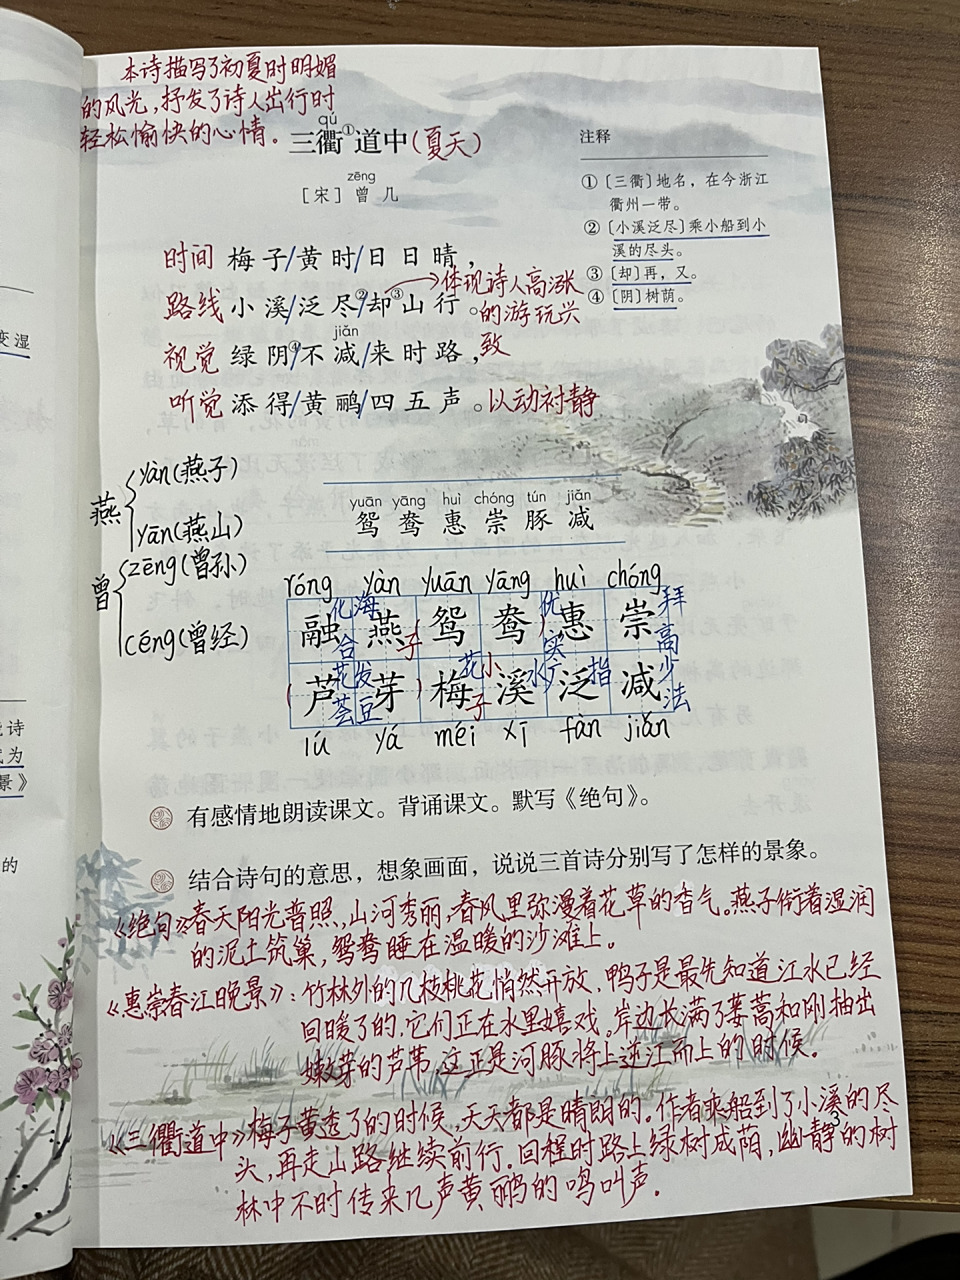 本诗描写了初夏时明媚
的风光，抒发了诗人出行时
轻松愉快的心情。
qú
三衢①道中(夏天)
zēng
[宋] 曾 几
注释
① [三衢] 地名，在今浙江
衢州一带。
② [小溪泛尽] 乘小船到小
溪的尽头。
③ [却] 再，又。
④ [阴] 树荫。
时间 梅子/黄时/日日晴，
路线 小溪/泛尽②/却③山行。
体现诗人高涨
的游玩兴
致
jiǎn
视觉 绿阴④/不减/来时路，
听觉 添得/黄鹂/四五声。以动衬静
燕
yàn(燕子)
yān(燕山)
曾
zēng(曾孙)
céng(曾经)
yuān yāng huì chóng tún jiǎn
鸳 鸯 惠 崇 豚 减
róng yàn yuān yāng huì chóng
融 燕 鸳 鸯 惠 崇
化 海 优 拜
合 子 实 高
芦 芽 梅 溪 泛 减
花 发 花 小 水 广 指 少
荟 豆 子 法
lú yá méi xī fàn jiǎn
有感情地朗读课文。背诵课文。默写《绝句》。
结合诗句的意思，想象画面，说说三首诗分别写了怎样的景象。
《绝句》:春天阳光普照，山河秀丽，春风里弥漫着花草的香气。燕子衔着湿润
的泥土筑巢，鸳鸯睡在温暖的沙滩上。
《惠崇春江晚景》：竹林外的几枝桃花悄然开放，鸭子是最先知道江水已经
回暖了的，它们正在水里嬉戏。岸边长满了蒌蒿和刚抽出
嫩芽的芦苇，这正是河豚将上逆江而上的时候。
《三衢道中》梅子黄透了的时候，天天都是晴朗的。作者乘船到了小溪的尽
头，再走山路继续前行。回程时路上绿树成荫，幽静的树
林中不时传来几声黄鹂的鸣叫声。
3
变湿
诗
为
景》
的